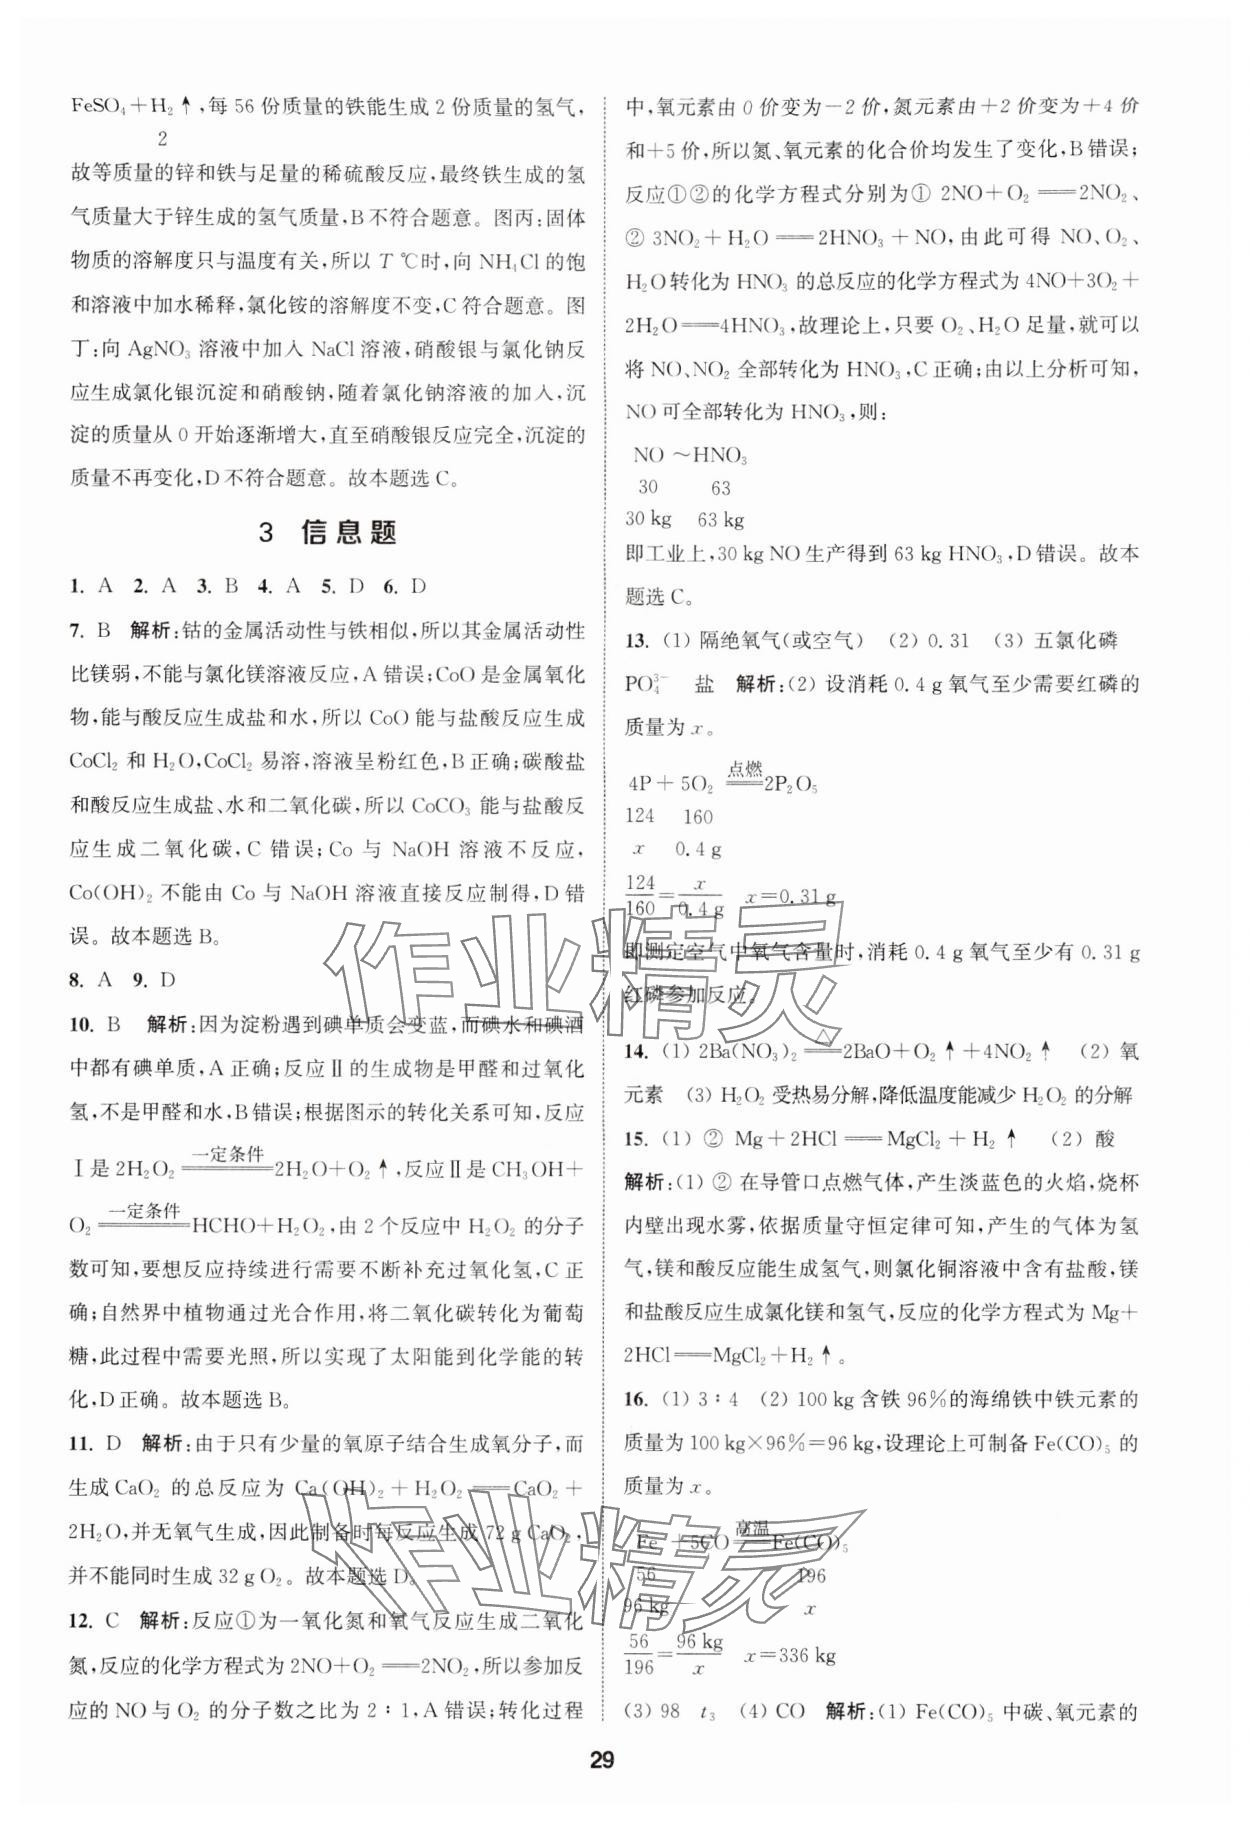 FeSO₄+H₂↑,每56份质量的铁能生成2份质量的氢气,
2
故等质量的锌和铁与足量的稀硫酸反应,最终铁生成的氢
气质量大于锌生成的氢气质量,B不符合题意。图丙:固体
物质的溶解度只与温度有关,所以T ℃时,向NH₄Cl的饱
和溶液中加水稀释,氯化铵的溶解度不变,C符合题意。图
丁:向AgNO₃溶液中加入NaCl溶液,硝酸银与氯化钠反
应生成氯化银沉淀和硝酸钠,随着氯化钠溶液的加入,沉
淀的质量从0开始逐渐增大,直至硝酸银反应完全,沉淀的
质量不再变化,D不符合题意。故本题选C。
3 信息题
1. A 2. A 3. B 4. A 5. D 6. D
7. B 解析:钴的金属活动性与铁相似,所以其金属活动性
比镁弱,不能与氯化镁溶液反应,A错误;CoO是金属氧化
物,能与酸反应生成盐和水,所以CoO能与盐酸反应生成
CoCl₂和H₂O,CoCl₂易溶,溶液呈粉红色,B正确;碳酸盐
和酸反应生成盐、水和二氧化碳,所以CoCO₃能与盐酸反
应生成二氧化碳,C错误;Co与NaOH溶液不反应,
Co(OH)₂不能由Co与NaOH溶液直接反应制得,D错
误。故本题选B。
8. A 9. D
10. B 解析:因为淀粉遇到碘单质会变蓝,而碘水和碘酒
中都有碘单质,A正确;反应Ⅱ的生成物是甲醛和过氧化
氢,不是甲醛和水,B错误;根据图示的转化关系可知,反应
Ⅰ是2H₂O₂ 一定条件══ 2H₂O+O₂↑,反应Ⅱ是CH₃OH+
O₂ 一定条件══ HCHO+H₂O₂,由2个反应中H₂O₂的分子
数可知,要想反应持续进行需要不断补充过氧化氢,C正
确;自然界中植物通过光合作用,将二氧化碳转化为葡萄
糖,此过程中需要光照,所以实现了太阳能到化学能的转
化,D正确。故本题选B。
11. D 解析:由于只有少量的氧原子结合生成氧分子,而
生成CaO₂的总反应为Ca(OH)₂+H₂O₂══CaO₂+
2H₂O,并无氧气生成,因此制备时每反应生成72 g CaO₂,
并不能同时生成32 g O₂。故本题选D。
12. C 解析:反应①为一氧化氮和氧气反应生成二氧化
氮,反应的化学方程式为2NO+O₂══2NO₂,所以参加反
应的NO与O₂的分子数之比为2∶1,A错误;转化过程
中,氧元素由0价变为−2价,氮元素由+2价变为+4价
和+5价,所以氮、氧元素的化合价均发生了变化,B错误;
反应①②的化学方程式分别为① 2NO+O₂══2NO₂、
② 3NO₂+H₂O══2HNO₃+NO,由此可得NO、O₂、
H₂O转化为HNO₃的总反应的化学方程式为4NO+3O₂+
2H₂O══4HNO₃,故理论上,只要O₂、H₂O足量,就可以
将NO、NO₂全部转化为HNO₃,C正确;由以上分析可知,
NO可全部转化为HNO₃,则:
NO ~HNO₃
30 63
30 kg 63 kg
即工业上,30 kg NO生产得到63 kg HNO₃,D错误。故本
题选C。
13. (1) 隔绝氧气(或空气) (2) 0.31 (3) 五氯化磷
PO₄³⁻ 盐 解析:(2) 设消耗0.4 g氧气至少需要红磷的
质量为x。
4P+5O₂ 点燃══ 2P₂O₅
124 160
x 0.4 g
124/160=x/0.4 g x=0.31 g
即测定空气中氧气含量时,消耗0.4 g氧气至少有0.31 g
红磷参加反应。
14. (1) 2Ba(NO₃)₂ △══ 2BaO+O₂↑+4NO₂↑ (2) 氧
元素 (3) H₂O₂受热易分解,降低温度能减少H₂O₂的分解
15. (1) ② Mg+2HCl══MgCl₂+H₂↑ (2) 酸
解析:(1) ② 在导管口点燃气体,产生淡蓝色的火焰,烧杯
内壁出现水雾,依据质量守恒定律可知,产生的气体为氢
气,镁和酸反应能生成氢气,则氯化铜溶液中含有盐酸,镁
和盐酸反应生成氯化镁和氢气,反应的化学方程式为Mg+
2HCl══MgCl₂+H₂↑。
16. (1) 3∶4 (2) 100 kg含铁96%的海绵铁中铁元素的
质量为100 kg×96%=96 kg,设理论上可制备Fe(CO)₅的
质量为x。
Fe +5CO 高温══ Fe(CO)₅
56 196
96 kg x
56/196=96 kg/x x=336 kg
(3) 98 t₃ (4) CO 解析:(1) Fe(CO)₅中碳、氧元素的
29
作业精灵
作业精灵